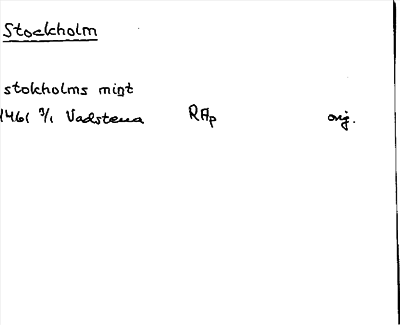 Stockholm
stokholms mint
1461 9/1 Vadstena RAp orig.